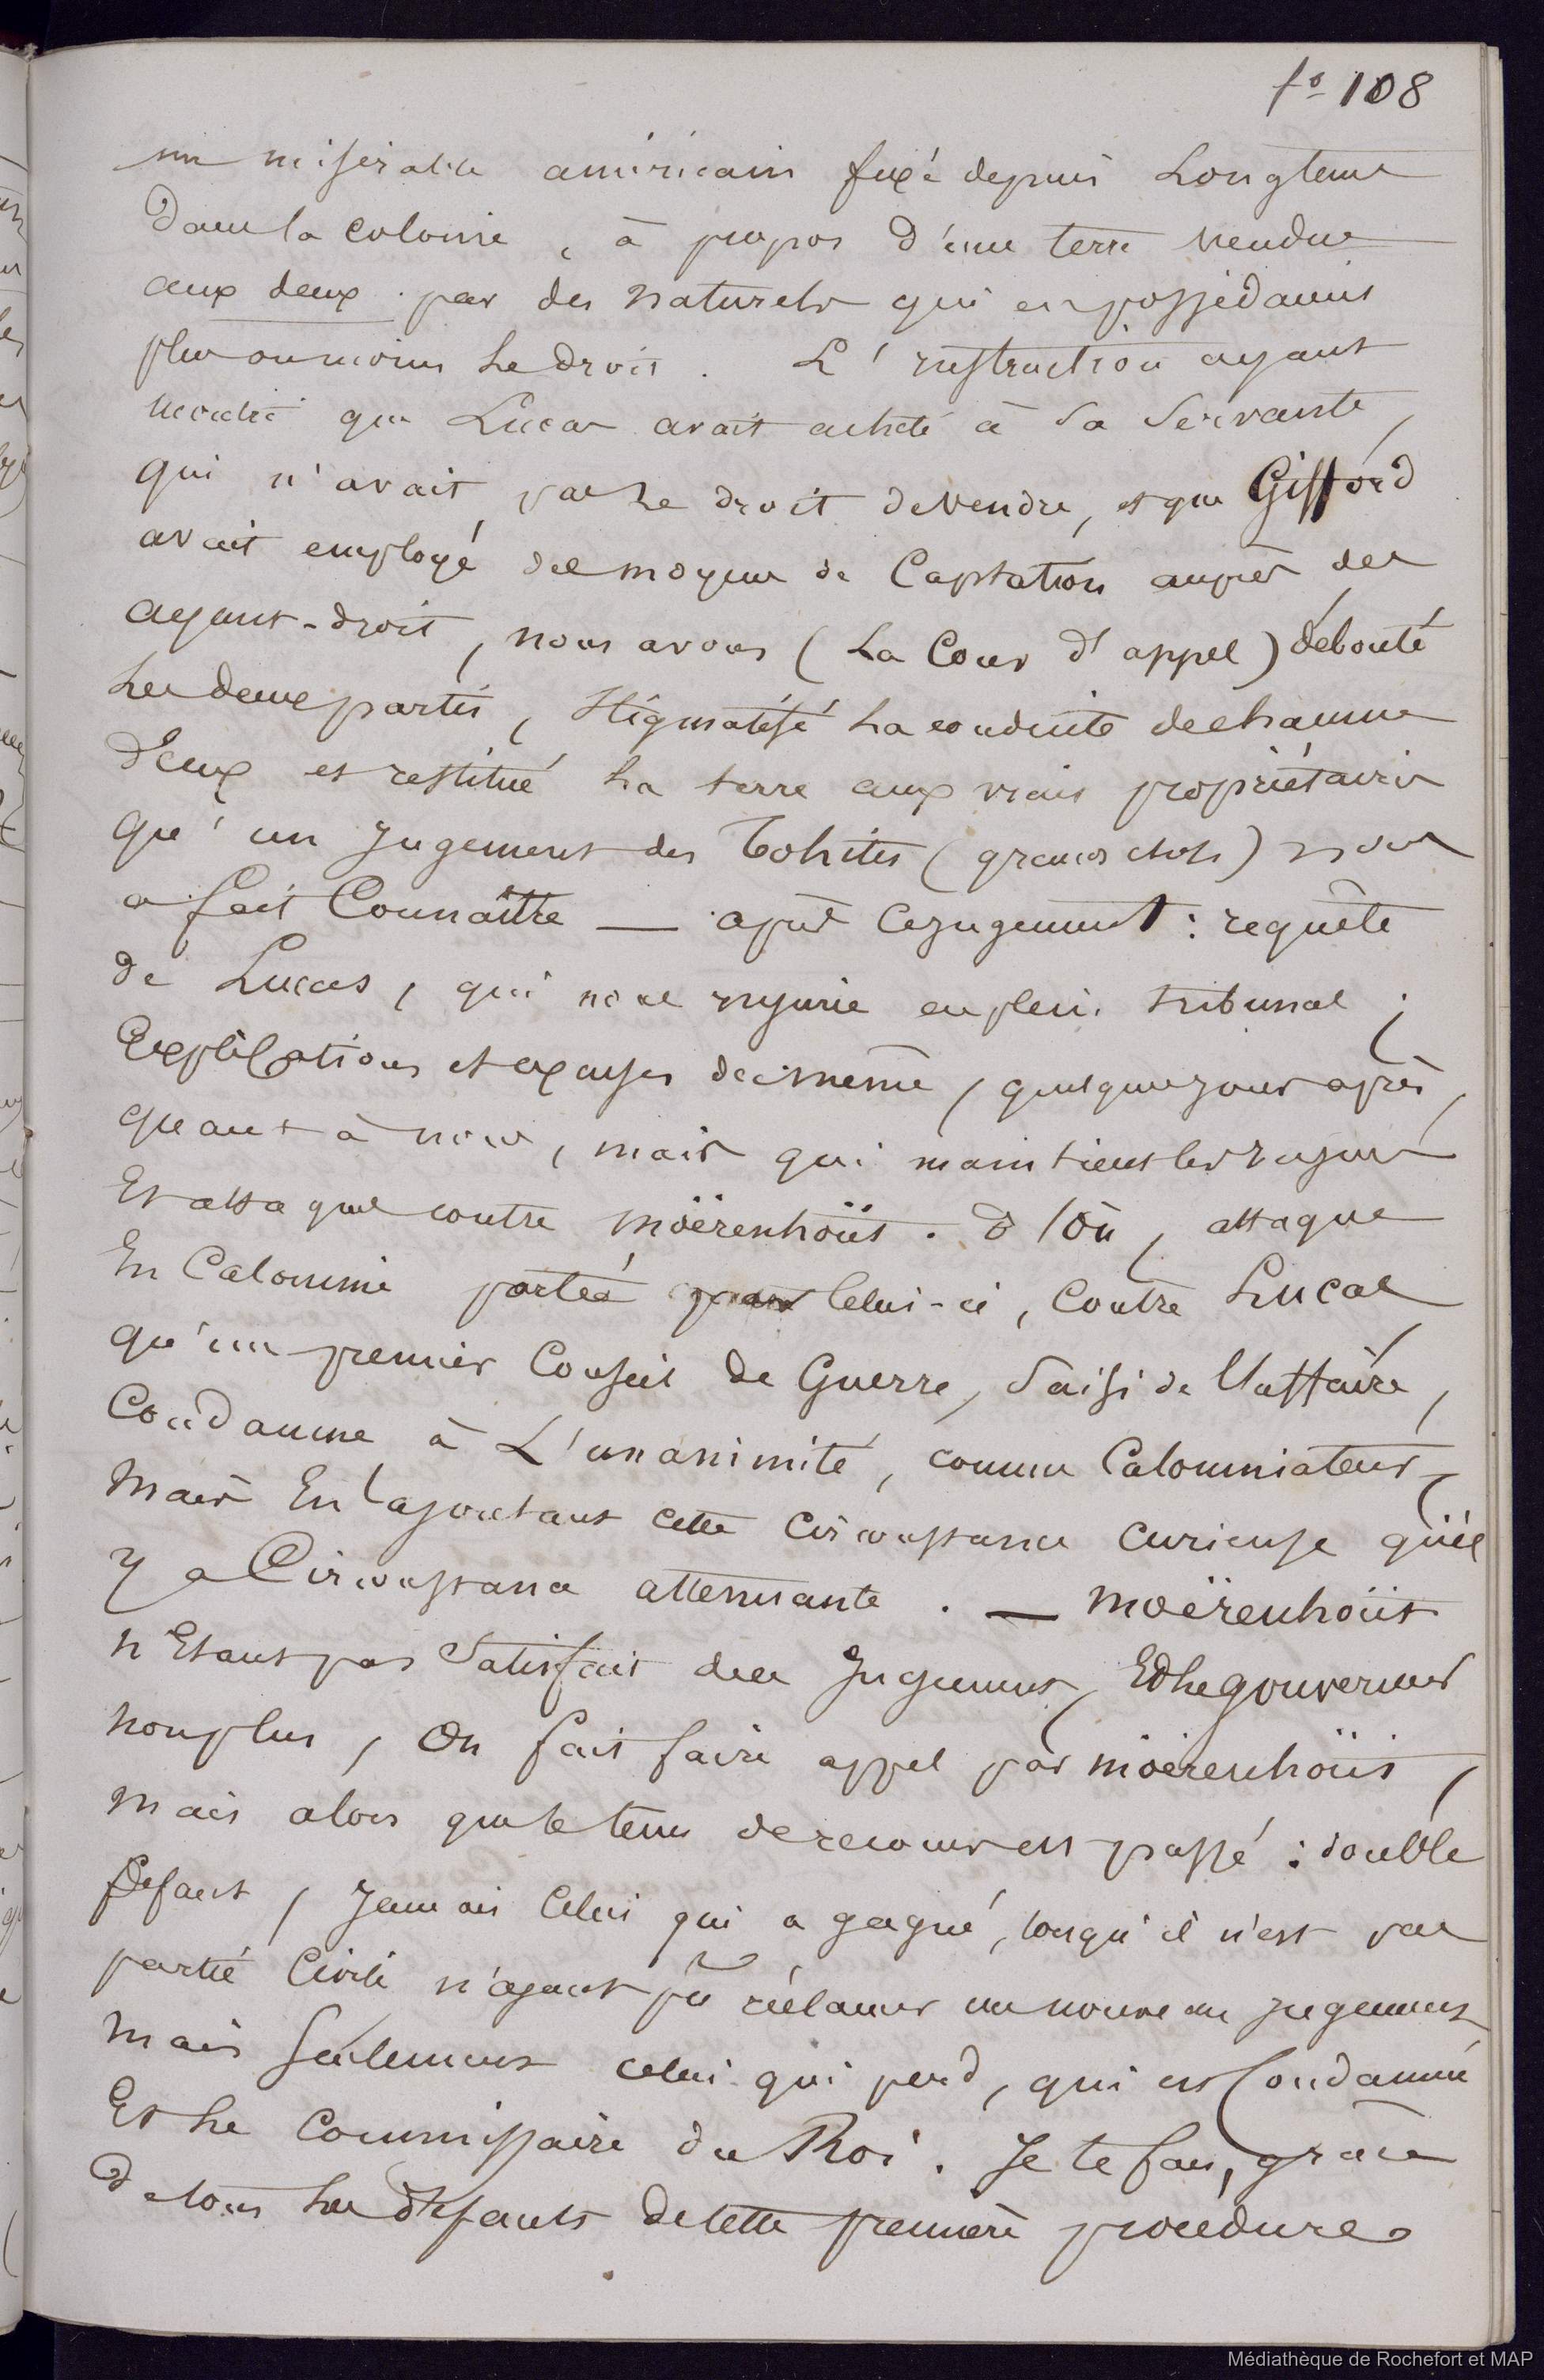 fo 108
un misérable américain fixé depuis Longtems
Dans la colonie, à propos d'une terre vendue
aux deux par des naturels qui en possédaient
plus ou moins Le droit. L'instruction ayant
montré que Lucas avait acheté à Sa Servante,
qui n'avait pas Le droit de vendre, et que Gifford
avait employé des moyens de Captation auprès des
ayant-droit, nous avons (La Cour d'appel) débouté
Les deux partis, Stigmatisé La conduite de chacun
d'Eux et restitué La terre aux vrais propriétaires
qu'un Jugement des Tohites (grands chefs) nous
a fait Connaître — après ce jugement : requête
de Lucas, qui nous injurie en plein tribunal ;
Explications et excuses du même, quelques jours après,
quant à nous, mais qui maintient les injures
Et attaques contre Moërenhoüt. D'où, attaque
En Calomnie portée par Celui-ci, Contre Lucas
qu'un premier Conseil de Guerre, Saisi de l'affaire,
Condamne à L'unanimité, comme Calomniateur,
Mais En ajoutant cette circonstance curieuse qu'il
y a Circonstance attenuante. — Moërenhoüt
n'Etant pas Satisfait du Jugement, Et Le gouverneur
non plus, On fait faire appel par Moërenhoüt,
mais alors que le tems de recours est passé : double
défaut, Jamais Celui qui a gagné, lorsqu'il n'est pas
partie Civile n'ayant pû réclamer un nouveau jugement
mais Seulement celui qui perd, qui est Condamné
Et Le Commissaire du Roi. Je te fais, grâce
de tous Les défauts de cette première procédure
Médiathèque de Rochefort et MAP